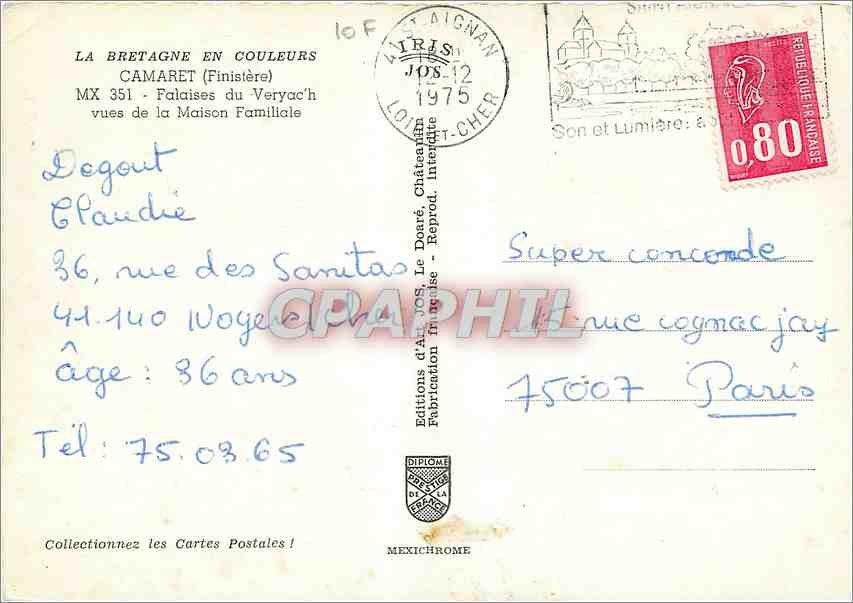 10F
LA BRETAGNE EN COULEURS
CAMARET (Finistère)
MX 351 - Falaises du Veryac'h
vues de la Maison Familiale
Degout
Claudie
36, rue des Sanitas
41.140 Noyers/Cher
âge : 36 ans
Tél : 75.03.65
Collectionnez les Cartes Postales !
IRIS
JOS
41 ST AIGNAN
12-12
1975
LOIR-ET-CHER
Son et Lumière:
REPUBLIQUE FRANÇAISE
POSTES
0,80
Editions d'Art JOS, Le Doaré, Châteaulin
Fabrication française - Reprod. interdite
CPAPHIL
Super concorde
15 rue cognac jay
75007 Paris
DIPLOME
PRESTIGE
DE LA
FRANCE
MEXICHROME